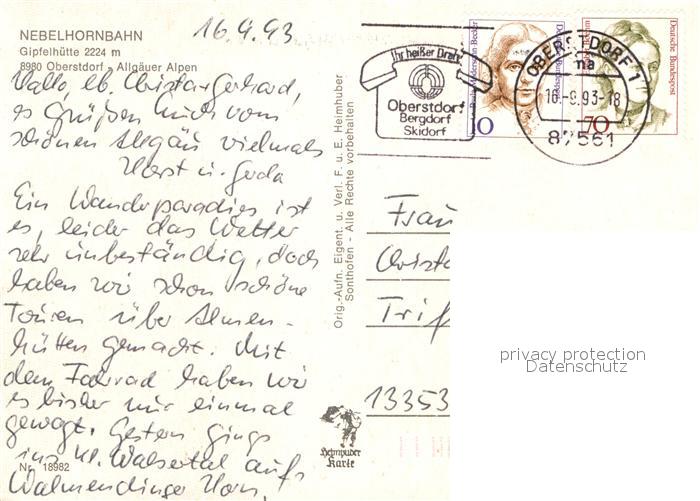 16.9.93
NEBELHORNBAHN
Gipfelhütte 2224 m
8980 Oberstdorf - Allgäuer Alpen
Hallo, lb. Christa + Gerhard,
es grüßen Euch vom
schönen Allgäu vielmals
Horst u. Gerda
Ein Wanderparadies ist
es, leider das Wetter
sehr unbeständig, doch
haben wir schon schöne
Touren über Almen-
hütten gemacht. Mit
dem Fahrrad haben wir
es bisher nur einmal
gewagt. Gestern gings
ins kl. Walsertal aufs
Walmendinger Horn.
Nr. 18982
Orig.-Aufn. Eigent. u. Verl. F. u. E. Heimhuber
Sonthofen - Alle Rechte vorbehalten
Heimhuber
Karte
Ihr heißer Draht
Oberstdorf
Bergdorf
Skidorf
OBERSTDORF 1
na
16.-9.93-18
87561
70
Deutsche Bundespost
Frau
Christa
13353
privacy protection
Datenschutz